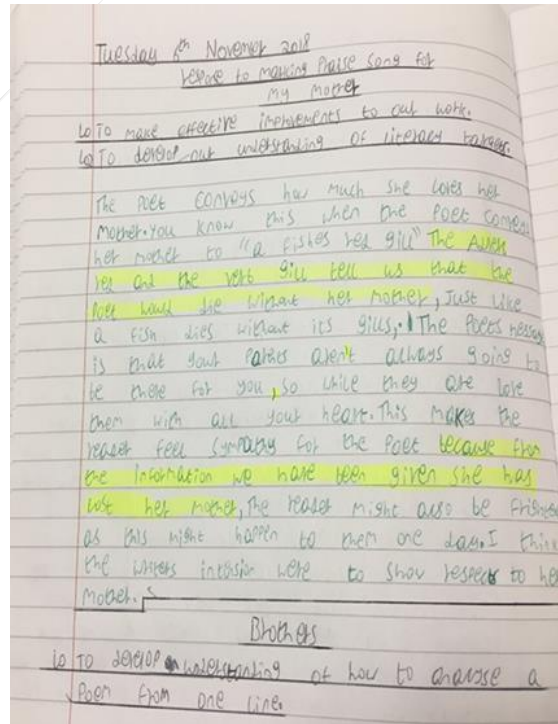 Tuesday 6th November 2018
respose to marking Praise Song for
My Mother
LO TO make effective improvements to our work.
LO TO develop our understanding of literacy targets.
The Poet conveys how much she loves her
Mother. You know this when the Poet compares
her mother to "a fishes red gill" The
red and the verb gill tell us that the
Poet would die without her mother, Just like
a fish dies without its gills. The Poets message
is that your parents aren't always going to
be there for you, so while they are love
them with all your heart. This makes the
reader feel sympathy for the Poet because from
the information we have been given she has
lost her mother, The reader might also be
as this might happen to them one day. I think
the writers intension were to show respect to her
Mother.
Brothers
LO TO develop understanding of how to analyse a
Poem from one line.